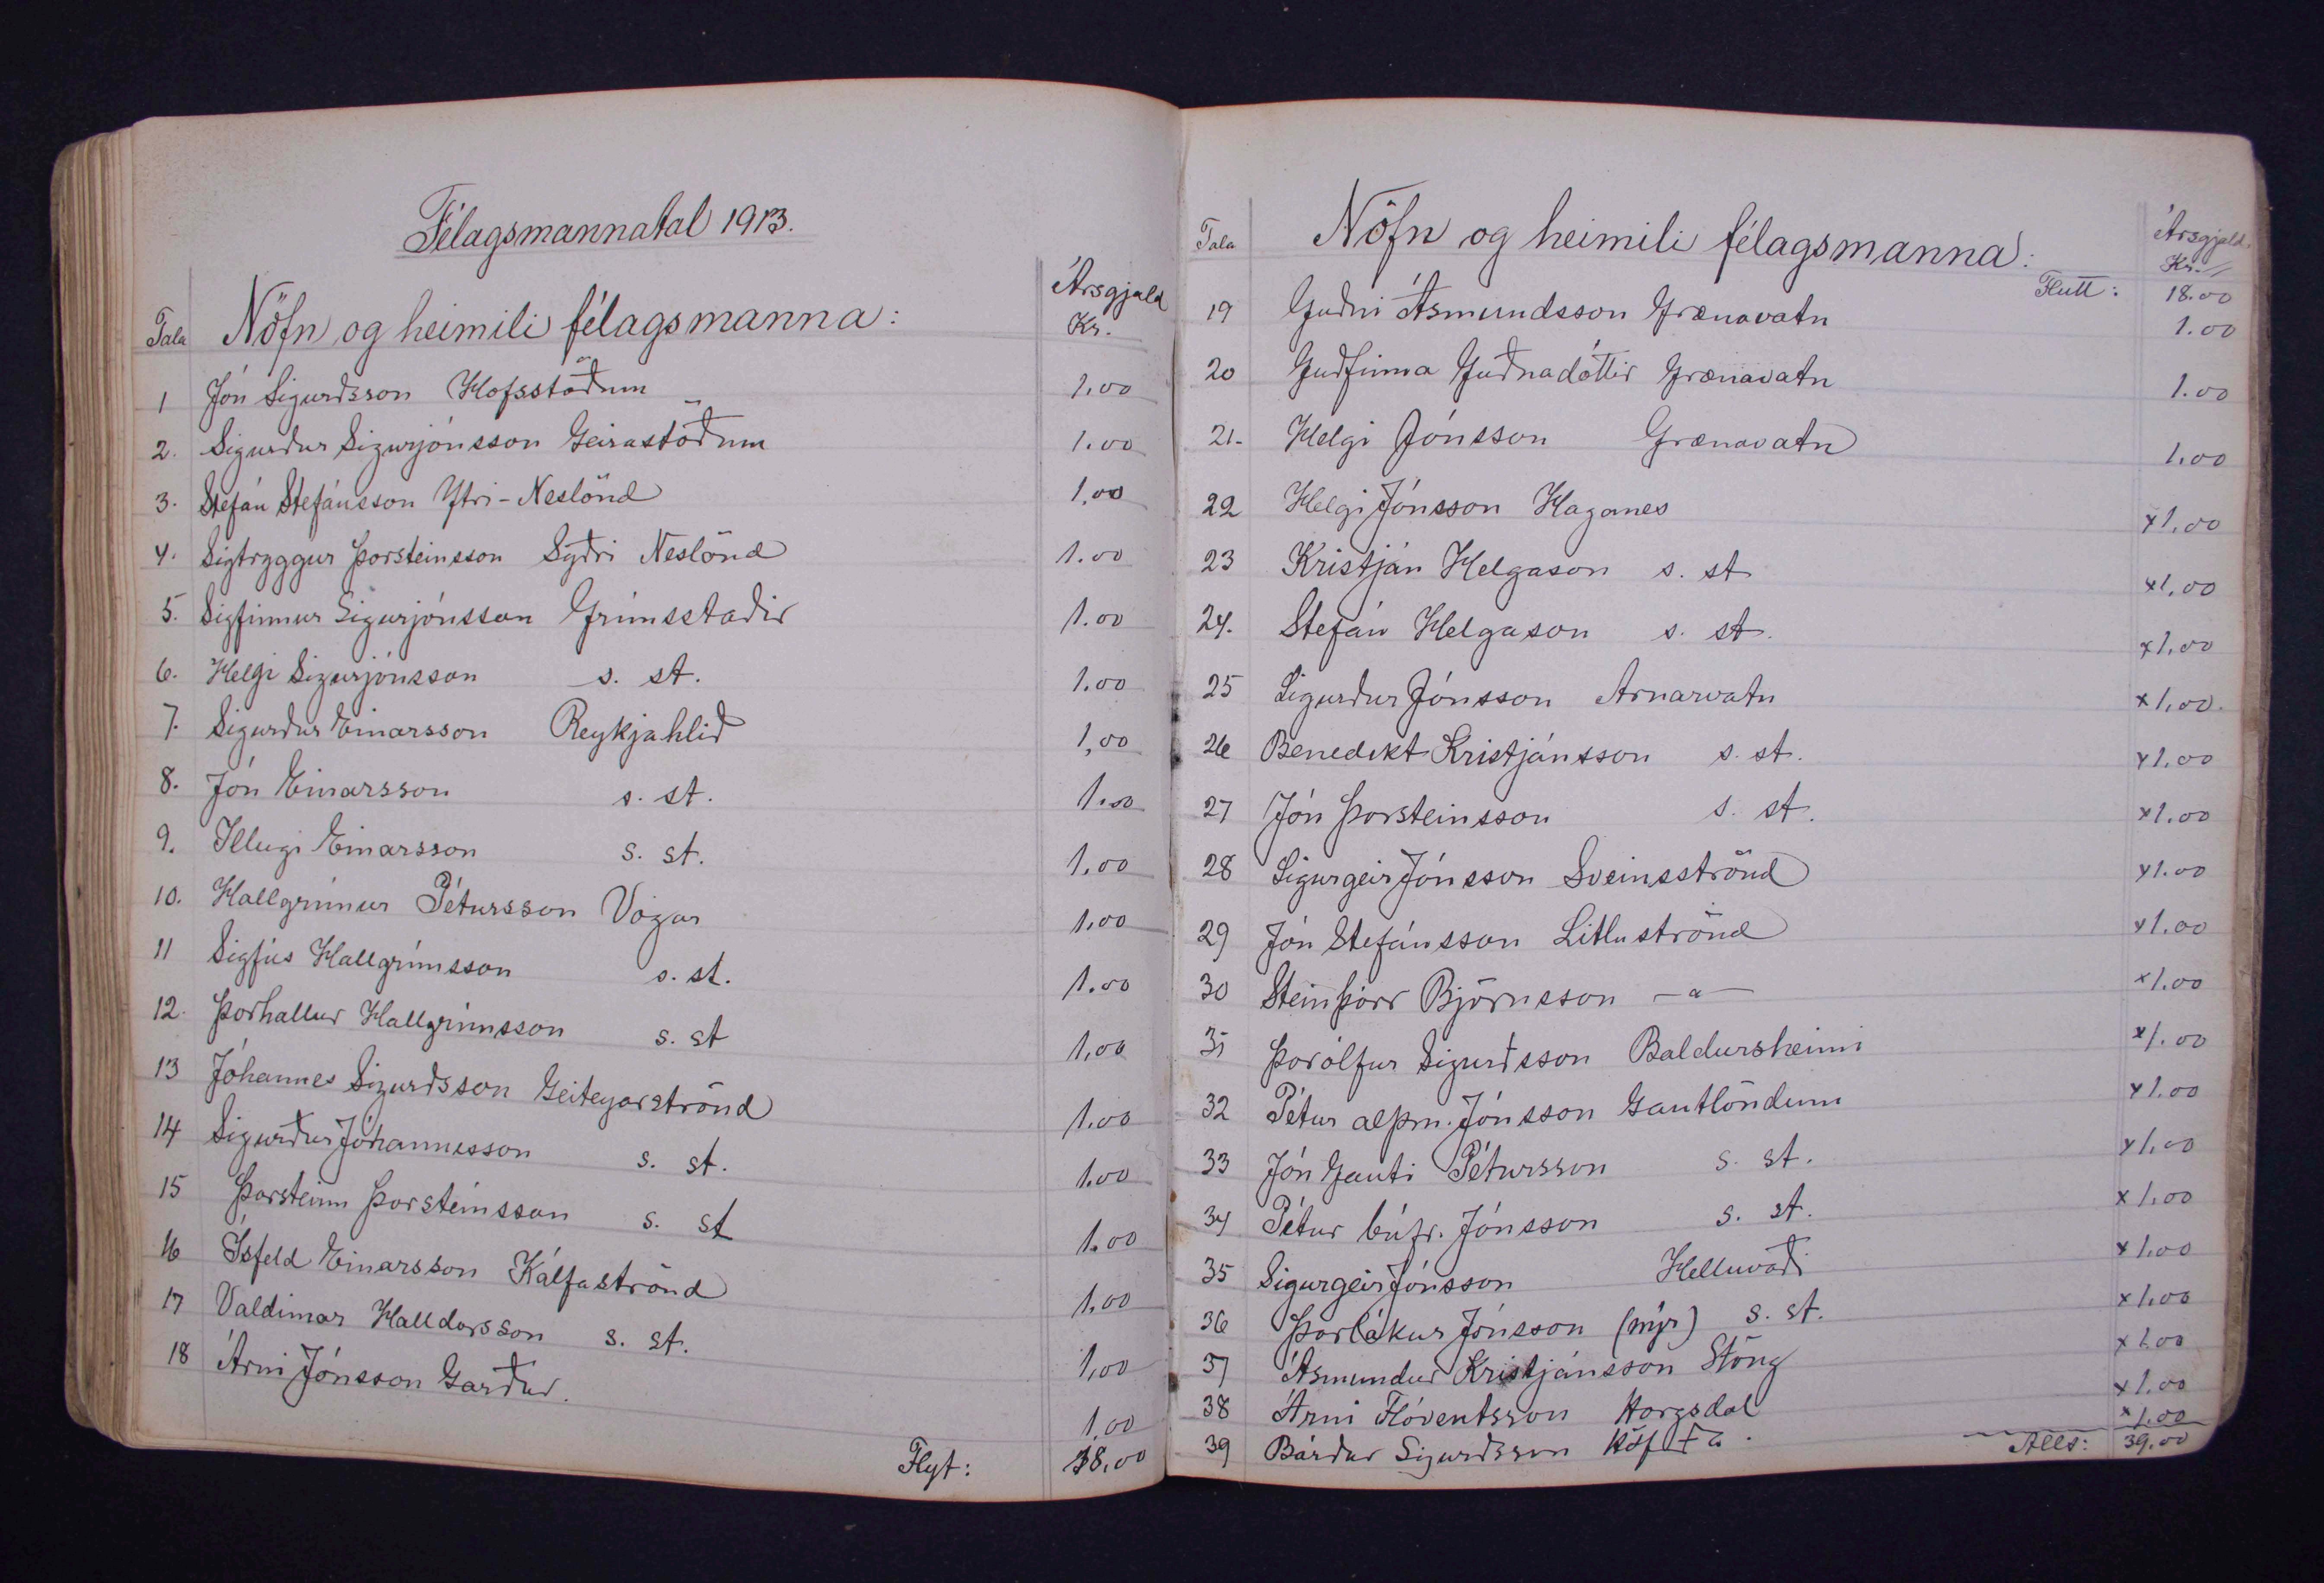 Félagsmannatal 1913.
Tala Nöfn og heimili félagsmanna: Ársgjald Kr.
1 Jón Sigurðsson Hofsstöðum 1.00
2. Sigurður Sigurjónsson Geirastöðum 1.00
3. Stefán Stefánsson Ytri-Neslönd 1.00
4. Sigtryggur Þorsteinsson Syðri Neslönd 1.00
5. Sigfinnur Sigurjónsson Grímsstaðir 1.00
6. Helgi Sigurjónsson s. st. 1.00
7. Sigurður Einarsson Reykjahlið 1,00
8. Jón Einarsson s. st. 1.00
9. Illugi Einarsson s. st. 1.00
10. Hallgrímur Pétursson Vogar 1,00
11 Sigfús Hallgrímsson s. st. 1.00
12. Þorhallur Hallgrímsson s. st 1,00
13 Jóhannes Sigurðsson Geiteyarströnd 1.00
14 Sigurður Jóhannesson s. st. 1.00
15 Þorsteinn Þorsteinsson s. st 1.00
16 Ísfeld Einarsson Kálfaströnd 1.00
17 Valdimar Halldorsson s. st. 1,00
18 Árni Jónsson Garður. 1.00
Flyt: 18.00
Tala Nöfn og heimili félagsmanna: Ársgjald. Kr.
Flutt: 18.00
19 Guðni Ásmundsson Grænavatn 1.00
20 Guðfinna Guðnadóttir Grænavatn 1.00
21. Helgi Jónsson Grænavatn 1.00
22 Helgi Jónsson Haganes x1.00
23 Kristján Helgason s. st x1,00
24. Stefán Helgason s. st. x1.00
25 Sigurður Jónsson Arnarvatn x1,00.
26 Benedikt Kristjánsson s. st. x1.00
27 Jón Þorsteinsson s. st. x1.00
28 Sigurgeir Jónsson Sveinsströnd x1.00
29 Jón Stefánsson Litluströnd x1.00
30 Steinþórr Björnsson —"— x1.00
31 Þorólfur Sigurðsson Baldursheimi x1.00
32 Pétur alþm. Jónsson Gautlöndum x1.00
33 Jón Gauti Pétursson s. st. x1.00
34 Pétur búfr. Jónsson s. st. x1.00
35 Sigurgeir Jónsson Helluvaði x1.00
36 Þorlákur Jónsson (nýr) s. st. x1.00
37 Ásmundur Kristjánsson Stöng x1.00
38 Árni Flóventsson Horgsdal x1.00
39 Bárður Sigurðsson Höfða. x1.00
Alls: 39.00